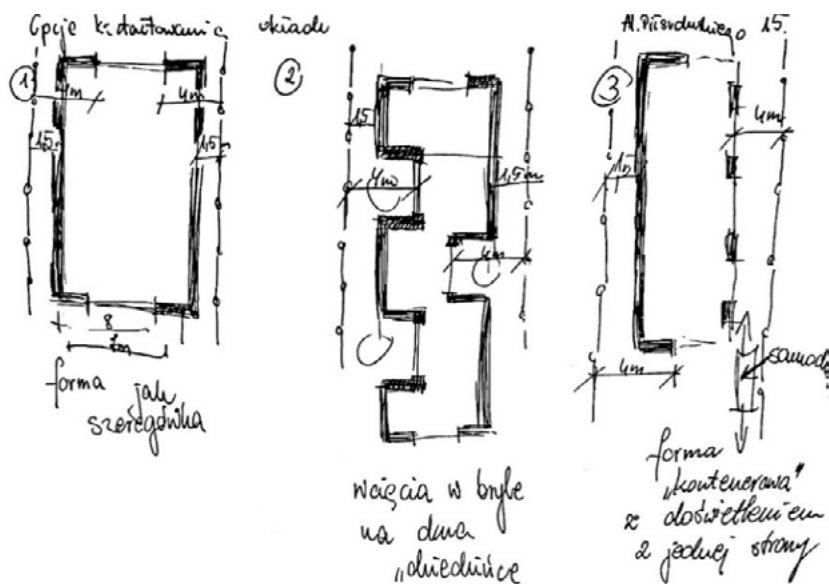 Opcje kształtowania układu
Al. Piłsudskiego 15.
1
4m
4m
1,5
1,5
8
forma jak
szeregówka
2
1,5
4m
1,5m
4m
wcięcia w bryłę
na dwa
„dziedzińce
3
4m
1,5
4m
samoch
forma
„kontenerowa"
z doświetleniem
z jednej strony